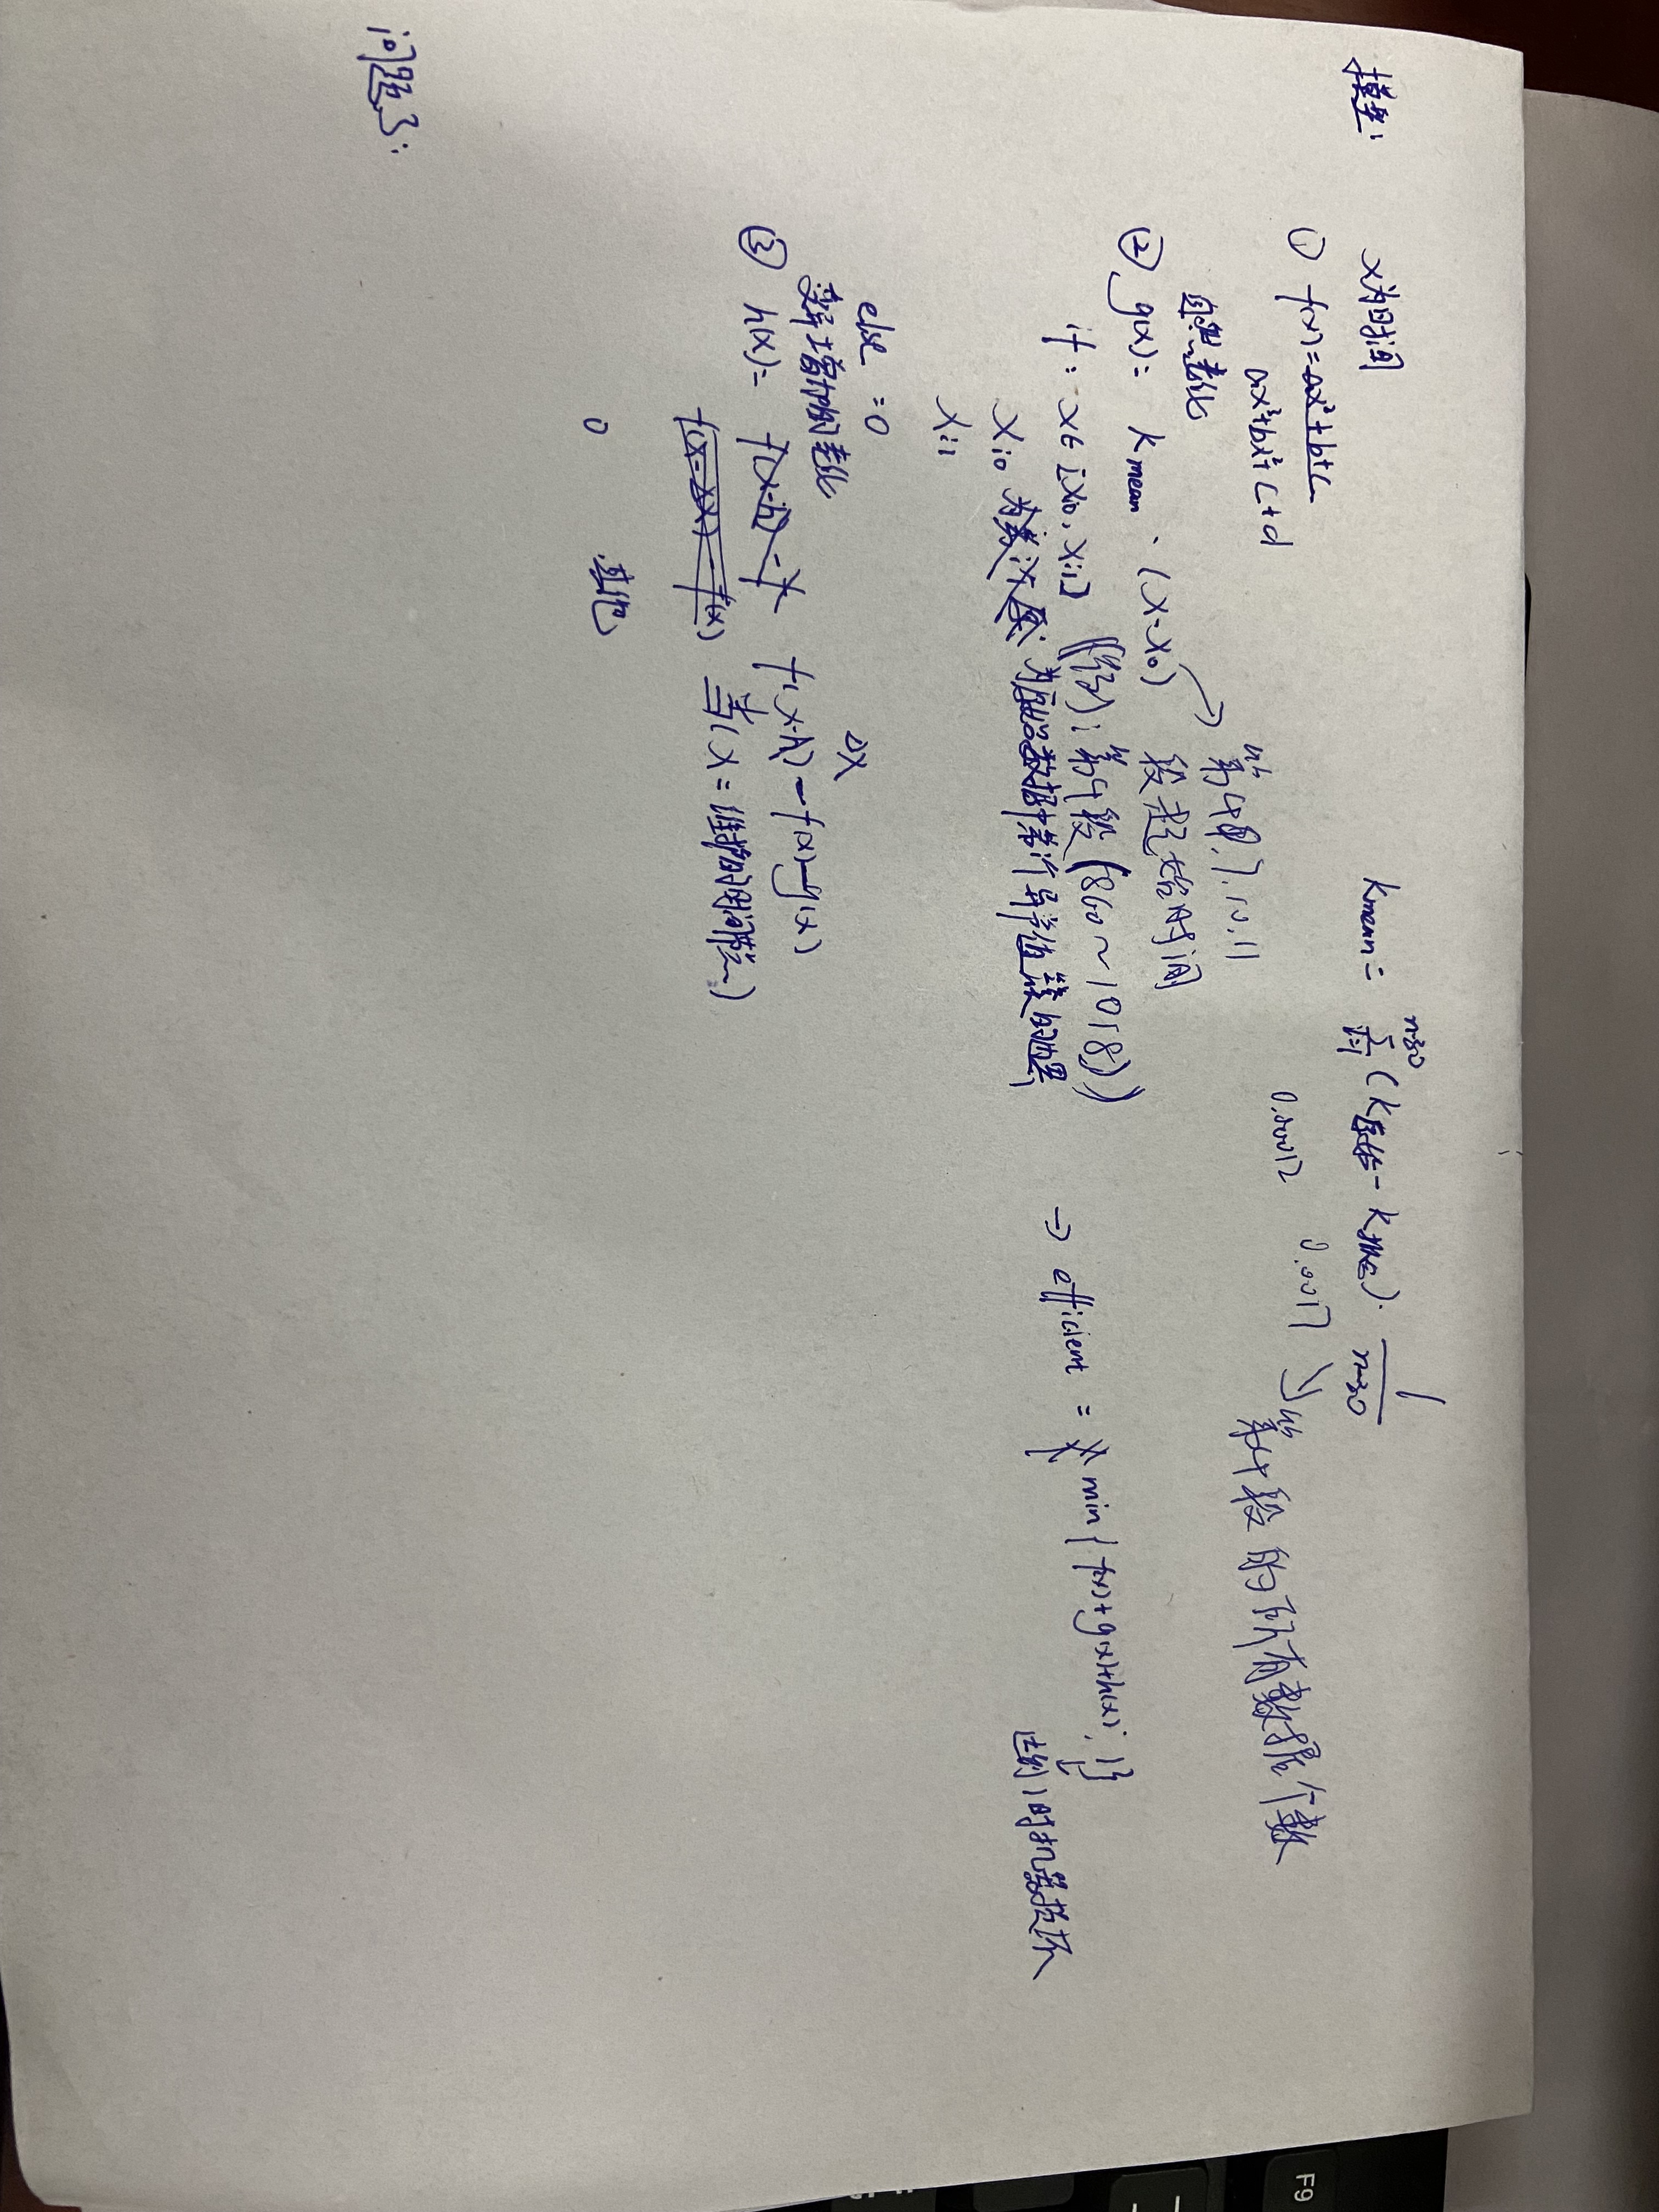 模型: x为时间
① f(x)=ax²+b+c
ax³+bx²+c+d
自然老化
② g(x)= Kmean·(x-x₀) → 第4、7、10、11
段起始时间
if: x∈[xi0, xi1] (例: 第4段(860~1018))
xi0 为原始数据中第i个异常值簇的边界
xi1
else =0
变异增加的老化
③ h(x)= f(x-Δx)-f(x)-g(x)
当(x=维护的时间节点)
0 其他
Kmean = Σ(i=1 → n-30) (K原始-K拟合)· 1/(n-30)
0.00012 0.0017 ↘ 第4段的所有数据个数
→ efficient = min{f(x)+g(x)+h(x), 1}
↓
达到1时机器损坏
问题3:
F9